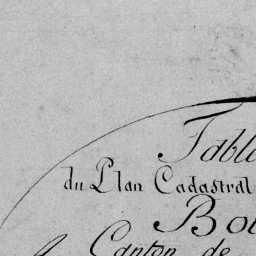 Tabl
du Plan Cadastral
Bo
Canton de